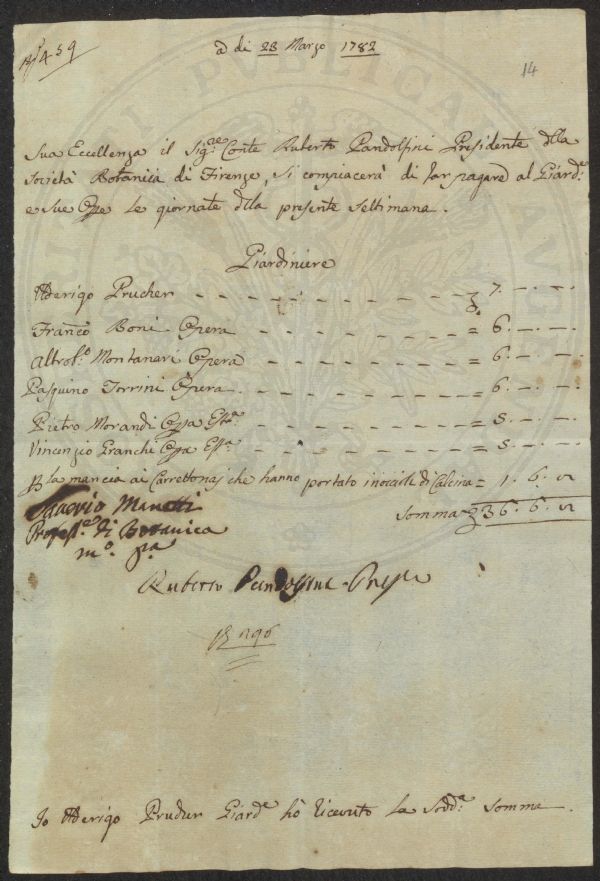 459
a di 28 Marzo 1782
14
Sua Eccellenza il Sig:re Conte Ruberto Pandolfini Presidente della
Società Botanica di Firenze, si compiacerà di far pagare al Giard:e
e sue Opre le giornate della presente Settimana.
Giardiniere
Aderigo Prucher 7. — . —
Franco Boni Opera = 6. — . —
Montanari Opera = 6. — . —
Pasquino Torrini Opera = 6. — . —
Pietro Morandi = 5. — . —
Vincenzio Granchi = 5. — . —
la mancia ai Carrettonaj che hanno portato di Calcina = 1. 6. 8
Somma 36. 6. 8
Saverio Manetti
Profess:re di Botanica
mo. pa.
Ruberto Pandolfini
Io Aderigo Prucher Giard:e hò ricevuto la Sodd:a Somma